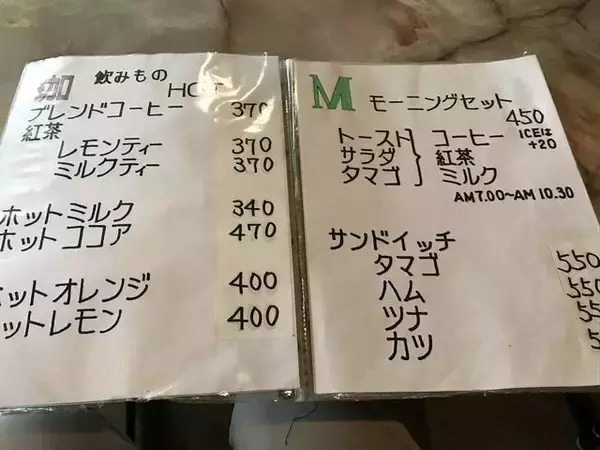 珈 飲みもの
HOT
ブレンドコーヒー 370
紅茶
レモンティー 370
ミルクティー 370
ホットミルク 340
ホットココア 470
ホットオレンジ 400
ットレモン 400
M モーニングセット
450
トースト コーヒー ICEは
サラダ 紅茶 +20
タマゴ ミルク
AM7.00~AM10.30
サンドイッチ
タマゴ 550
ハム 550
ツナ 55
カツ